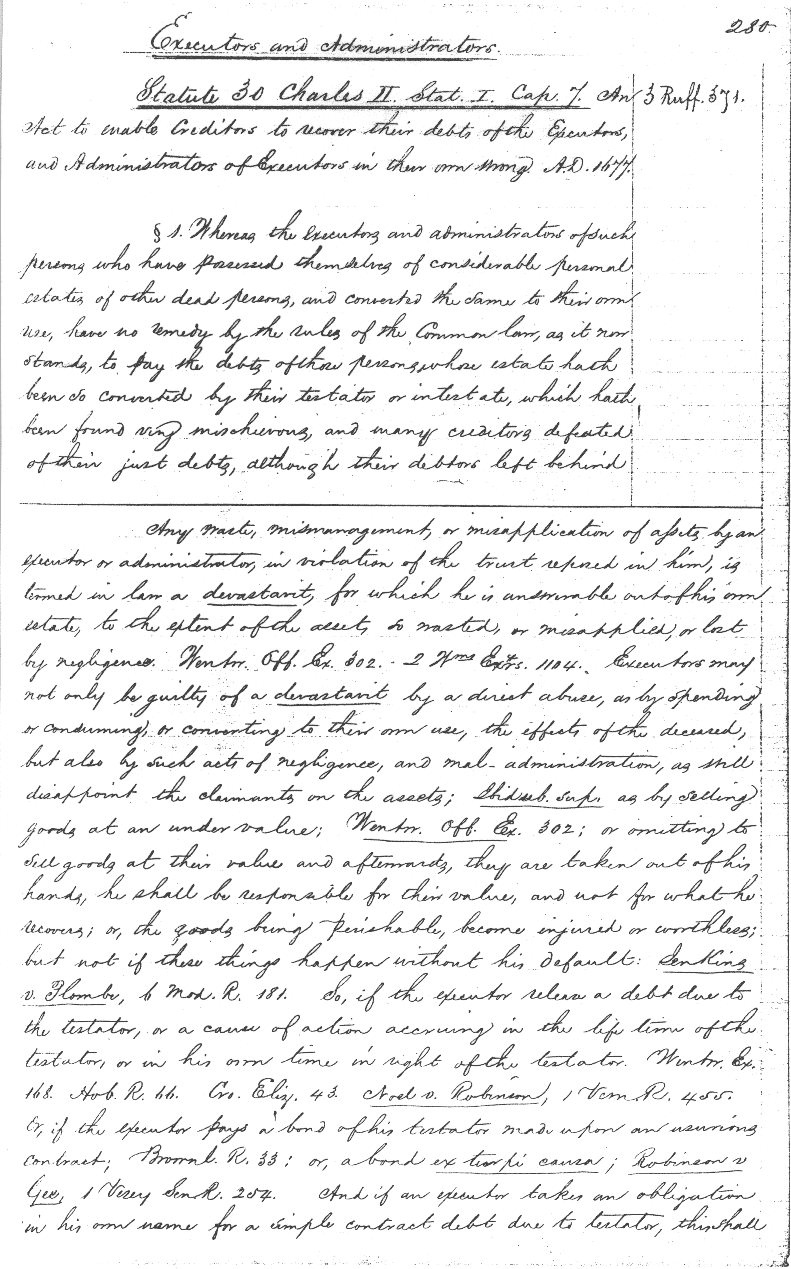 280.
Executors and Administrators.
Statute 30 Charles II. Stat. I. Cap. 7. An
3 Ruff. 371.
Act to enable Creditors to recover their debts of the Executors,
and Administrators of Executors in their own wrong. A.D. 1677.
§ 1. Whereas the executors and administrators of such
persons who have possessed themselves of considerable personal
estates of other dead persons, and converted the same to their own
use, have no remedy by the rules of the Common law, as it now
stands, to pay the debts of those persons whose estate hath
been so converted by their testator or intestate, which hath
been found very mischievous, and many creditors defeated
of their just debts, although their debtors left behind
Any waste, mismanagement, or misapplication of assets by an
executor or administrator, in violation of the trust reposed in him, is
termed in law a devastavit, for which he is answerable out of his own
estate, to the extent of the assets so wasted, or misapplied, or lost
by negligence. Wentw. Off. Ex. 302. - 2 Wms Extrs. 1104. Executors may
not only be guilty of a devastavit by a direct abuse, as by spending
or consuming, or converting to their own use, the effects of the deceased,
but also by such acts of negligence, and mal-administration, as still
disappoint the claimants on the assets; Ibid ub. sup. as by selling
goods at an under value; Wentw. Off. Ex. 302; or omitting to
sell goods at their value and afterwards, they are taken out of his
hands, he shall be responsible for their value, and not for what he
recovers; or, the goods being perishable, become injured or worthless;
but not if these things happen without his default: Jenkins
v. Plombe, 6 Mod. R. 181. So, if the executor release a debt due to
the testator, or a cause of action accruing in the life time of the
testator, or in his own time in right of the testator. Wentw. Ex.
168. Hob. R. 66. Cro. Eliz. 43. Noel v. Robinson, 1 Vern R. 455.
Or, if the executor pays a bond of his testator made upon an usurious
contract; Brownl. R. 33: or, a bond ex turpi causa; Robinson v
Gee, 1 Vesey Sen R. 254. And if an executor takes an obligation
in his own name for a simple contract debt due to testator, this shall